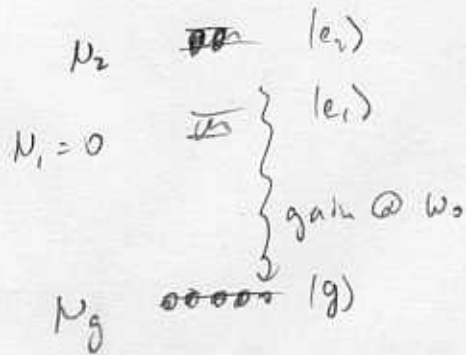 N₂ |e₂⟩
N₁ = 0 |e₁⟩
gain @ ω₀
N_g |g⟩